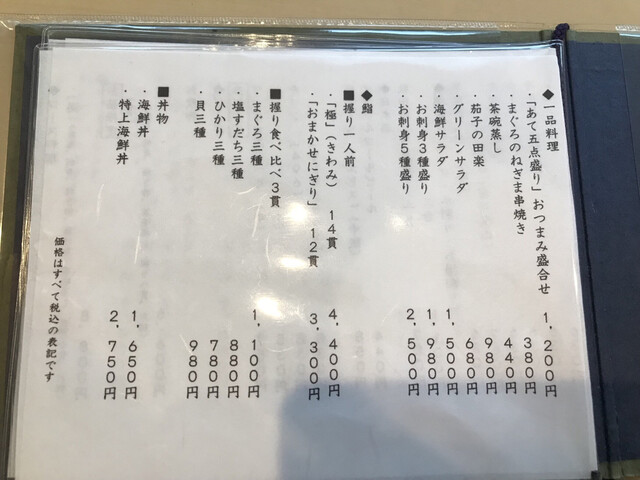 ◆一品料理
・「あて五点盛り」おつまみ盛合せ 1,200円
・まぐろのねぎま串焼き 380円
・茶碗蒸し 440円
・茄子の田楽 980円
・グリーンサラダ 680円
・海鮮サラダ 1,500円
・お刺身3種盛り 1,980円
・お刺身5種盛り 2,500円
◆鮨
■握り一人前
・「極」(きわみ) 14貫 4,400円
・「おまかせにぎり」 12貫 3,300円
■握り食べ比べ3貫
・まぐろ三種 1,100円
・塩すだち三種 880円
・ひかり三種 780円
・貝三種 980円
■丼物
・海鮮丼 1,650円
・特上海鮮丼 2,750円
価格はすべて税込の表記です